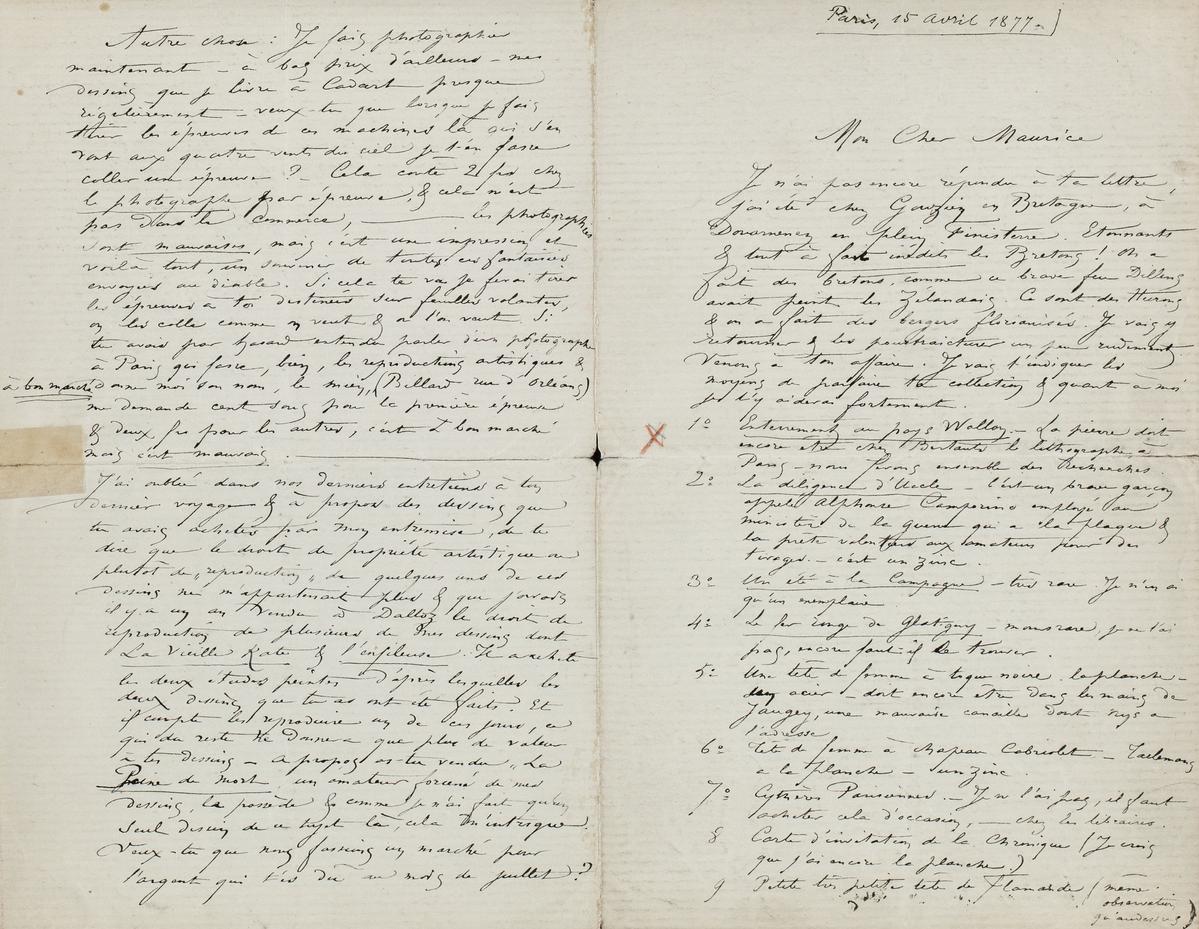 Paris, 15 Avril 1877
Mon Cher Maurice
Je n'ai pas encore répondu à ta lettre,
j'ai été chez Gouzien en Bretagne, à
Douarnenez en plein Finisterre. Etonnants
& tout à fait inédits les Bretons ! On a
fait des bretons, comme ce brave feu Dillens
avait peint les Zélandais. Ce sont des Hurons
& on a fait des bergers florianisés. Je vais y
retourner & les pourtraicturer un peu rudement
Venons à ton affaire. Je vais t'indiquer les
moyens de parfaire ta collection & quant à moi
je t'y aiderai fortement.
1º Enterrement au pays Wallon. – La pierre doit
encore être chez Bertauts le lithographe, à
Paris – nous ferons ensemble des Recherches.
2º La diligence d'Uccle – C'est un brave garçon
appelé Alphonse Camporino employé au
ministère de la guerre qui a la plaque &
la prête volontiers aux amateurs pour des
tirages. – c'est un zinc.
3º Un été à la Campagne – très rare. Je n'en ai
qu'un exemplaire
4º Le fer rouge de Glatigny – moins rare, je ne l'ai
pas, encore faut-il le trouver.
5º Une tête de femme à toque noire. la planche –
acier – doit encore être dans les mains de
Jaugey, une mauvaise canaille dont Nys a
l'adresse
6º Tête de femme à chapeau Cabriolet. – Taelemans
a la planche – un zinc.
7º Cythères Parisiennes. – Je ne l'ai pas, il faut
acheter cela d'occasion, — chez les libraires.
8 Carte d'invitation de la Chronique (Je crois
que j'ai encore la planche.)
9 Petite très petite tête de Flamande (même
observation
qu'au dessus)
Autre chose : Je fais photographier
maintenant – à bas prix d'ailleurs – mes
dessins que je livre à Cadart presque
régulièrement – veux-tu que lorsque je fais
tirer les épreuves de ces machines là qui s'en
vont aux quatre vents du ciel je t'en fasse
coller une épreuve ? – Cela coûte 2 frs chez
le photographe par épreuve, & cela n'est
pas dans le commerce, — les photographies
sont mauvaises, mais c'est une impression et
voilà tout, un souvenir de toutes ces fantaisies
envoyées au diable. Si cela te va je ferai tirer
les épreuves à toi destinées sur feuilles volantes,
on les colle comme on veut & où l'on veut. Si
tu avais par hasard entendu parler d'un photographe
à Paris qui fasse, bien, les reproductions artistiques &
à bon marché donne moi son nom, le mien, (Billard rue d'Orléans)
me demande cent sous pour la première épreuve
& deux frs pour les autres, c'est bon marché
mais c'est mauvais.
J'ai oublié dans nos derniers entretiens à ton
dernier voyage & à propos des dessins que
tu avais achetés par mon entremise, de te
dire que le droit de propriété artistique ou
plutôt de „reproduction„ de quelques uns de ces
dessins ne m'appartenait plus & que j'avais
il y a un an vendu à Dalloz le droit de
reproduction de plusieurs de mes dessins dont
La Vieille Kate & l'enfileuse. Il a acheté
les deux études peintes d'après lesquelles les
deux dessins que tu as ont été faits. Et
il compte les reproduire un de ces jours, ce
qui du reste ne donnera que plus de valeur
à tes dessins – à propos as-tu vendu „La
Peine de mort un amateur forcené de mes
dessins, la possède & comme je n'ai fait qu'un
seul dessin de ce sujet là, cela m'intrigue.
Veux-tu que nous fassions un marché pour
l'argent qui t'es dû au mois de juillet ?